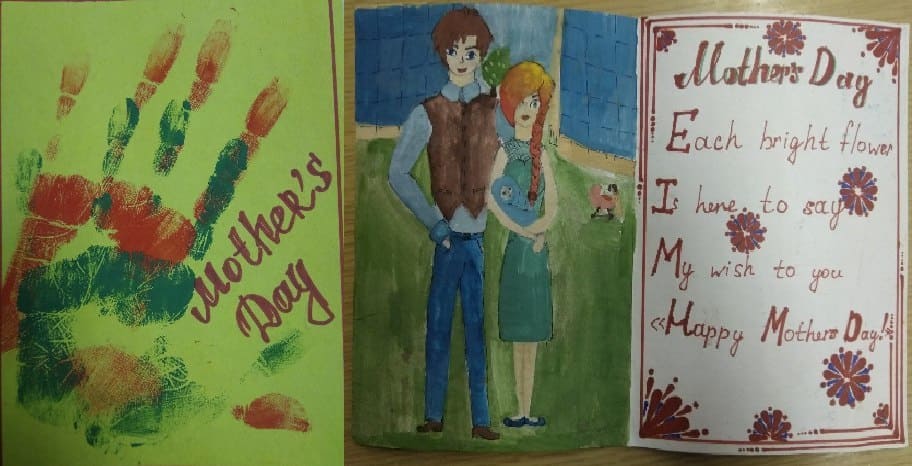 Mother's
Day
Mother's Day
Each bright flower
Is here to say
My wish to you
«Happy Mothers Day!»